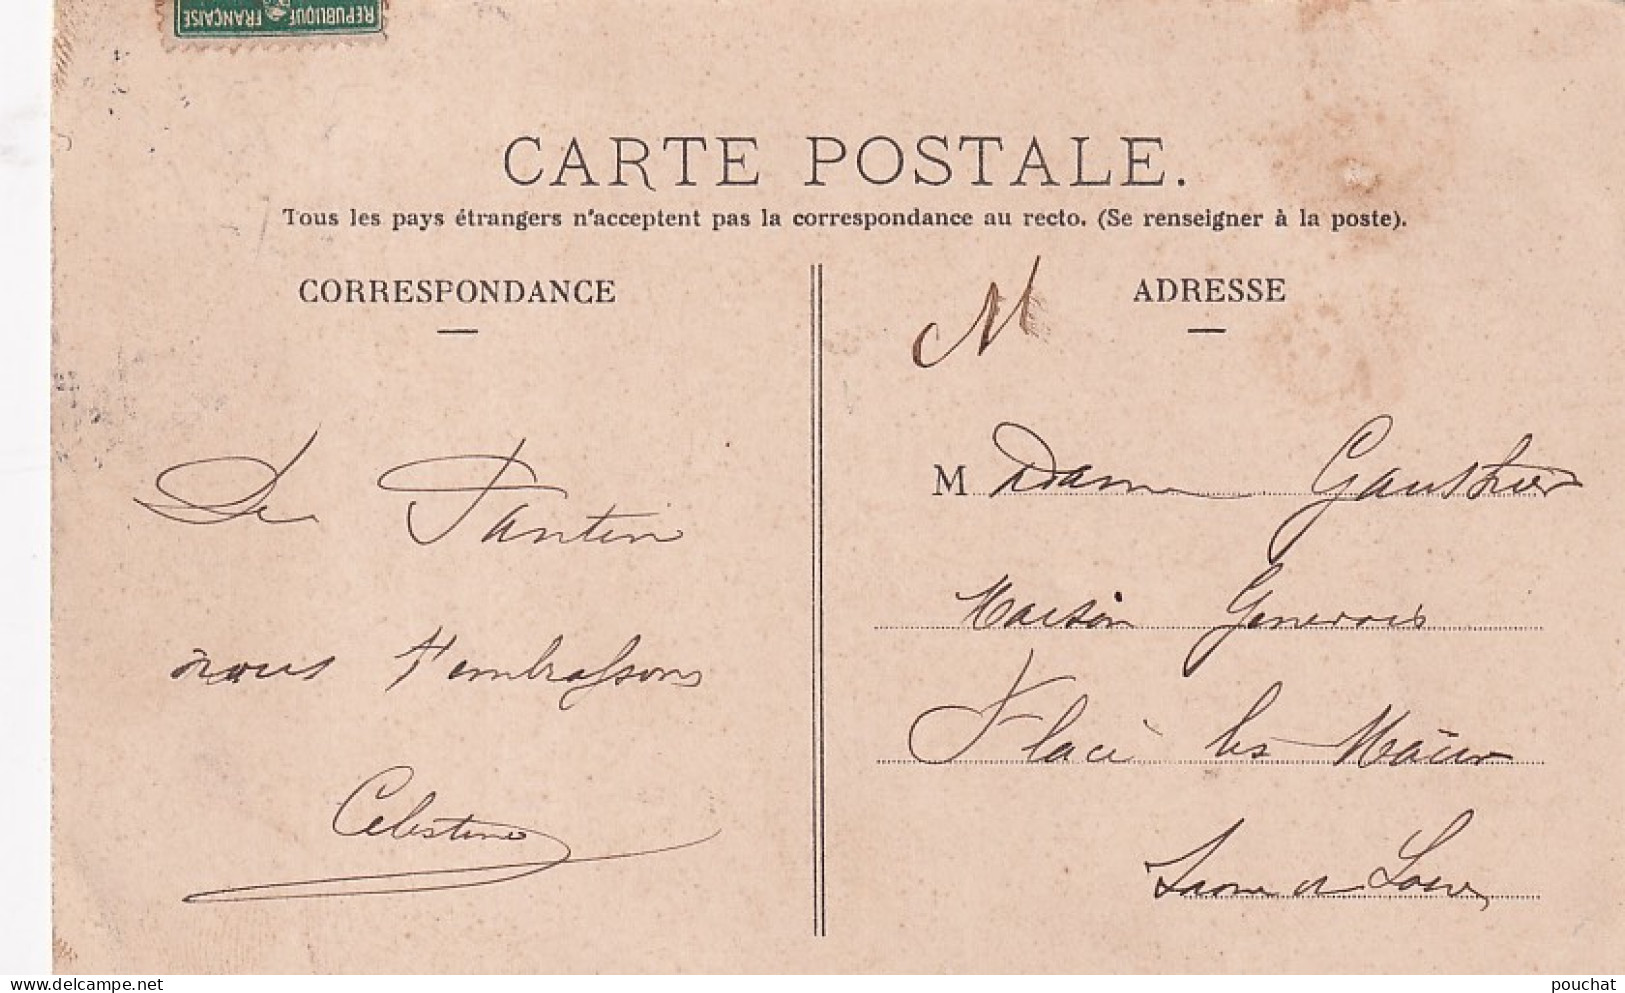 REPUBLIQUE FRANÇAISE
CARTE POSTALE.
Tous les pays étrangers n'acceptent pas la correspondance au recto. (Se renseigner à la poste).
CORRESPONDANCE
De Pantin
nous t'embrassons
Celestine
ADRESSE
M
M adame Gauthier
Maison Genevois
Flacé les Mâcon
Saone et Loire
delcampe.net
pouchat